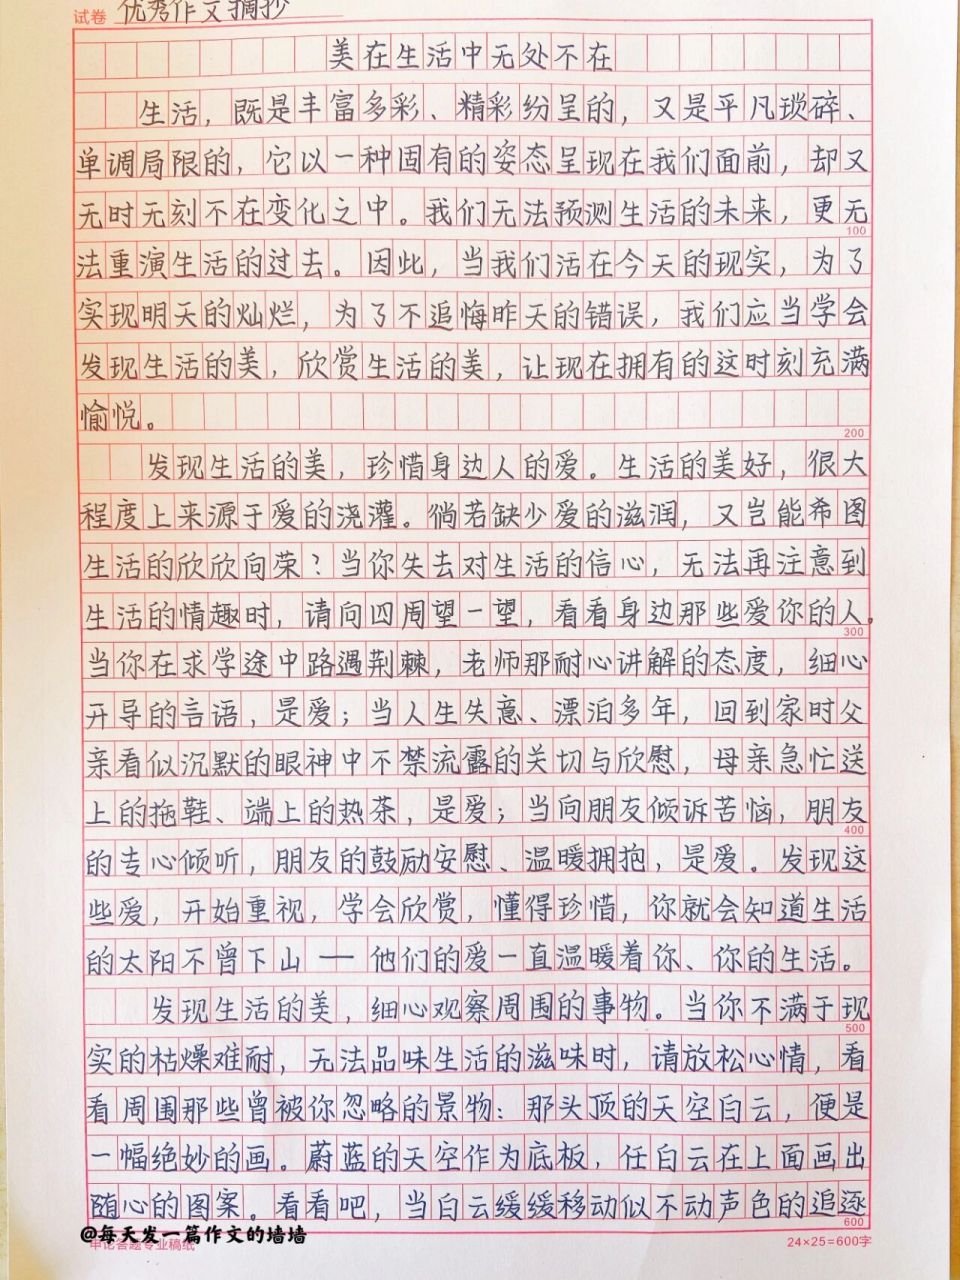 试卷 优秀作文摘抄
美在生活中无处不在
生活，既是丰富多彩、精彩纷呈的，又是平凡琐碎、
单调局限的，它以一种固有的姿态呈现在我们面前，却又
无时无刻不在变化之中。我们无法预测生活的未来，更无
100
法重演生活的过去。因此，当我们活在今天的现实，为了
实现明天的灿烂，为了不追悔昨天的错误，我们应当学会
发现生活的美，欣赏生活的美，让现在拥有的这时刻充满
愉悦。
200
发现生活的美，珍惜身边人的爱。生活的美好，很大
程度上来源于爱的浇灌。倘若缺少爱的滋润，又岂能希图
生活的欣欣向荣？当你失去对生活的信心，无法再注意到
生活的情趣时，请向四周望一望，看看身边那些爱你的人。
300
当你在求学途中路遇荆棘，老师那耐心讲解的态度，细心
开导的言语，是爱；当人生失意、漂泊多年，回到家时父
亲看似沉默的眼神中不禁流露的关切与欣慰，母亲急忙送
上的拖鞋、端上的热茶，是爱；当向朋友倾诉苦恼，朋友
400
的专心倾听，朋友的鼓励安慰、温暖拥抱，是爱。发现这
些爱，开始重视，学会欣赏，懂得珍惜，你就会知道生活
的太阳不曾下山——他们的爱一直温暖着你、你的生活。
发现生活的美，细心观察周围的事物。当你不满于现
500
实的枯燥难耐，无法品味生活的滋味时，请放松心情，看
看周围那些曾被你忽略的景物：那头顶的天空白云，便是
一幅绝妙的画。蔚蓝的天空作为底板，任白云在上面画出
随心的图案。看看吧，当白云缓缓移动似不动声色的追逐
600
@每天发一篇作文的墙墙
申论答题专业稿纸
24×25=600字